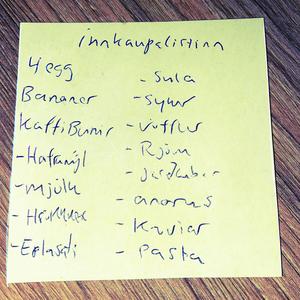 innkaupalistinn
4 egg
Bananar
Kaffi Baunir
- Haframjöl
- mjólk
- Eplasafi
- Sulta
- sykur
- vöfflur
- Rjómi
- jarðaber
- ananas
- Kavíar
- Pasta